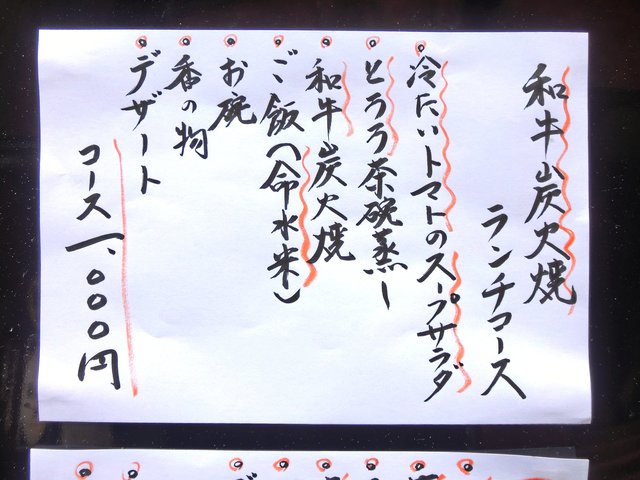 和牛炭火焼
ランチコース
冷たいトマトのスープサラダ
とろろ茶碗蒸し
和牛炭火焼
ご飯(命水米)
お碗
香の物
デザート
コース一、〇〇〇円